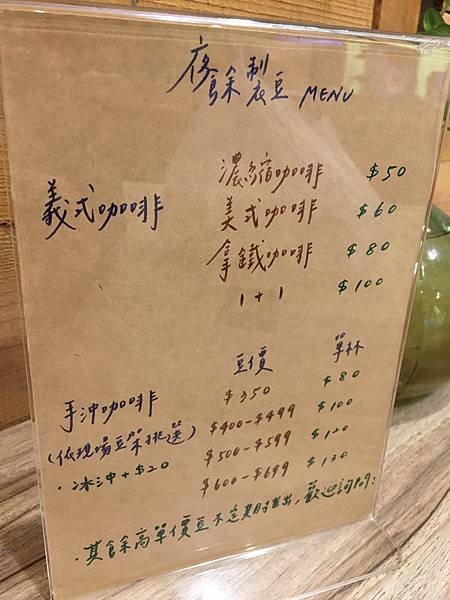 夜餘製豆 MENU
義式咖啡
濃縮咖啡 $50
美式咖啡 $60
拿鐵咖啡 $80
1+1 $100
豆價 單杯
手沖咖啡 $350 $80
(依現場豆架挑選) $400-$499 $100
·冰沖+$20 $500-$599 $120
$600-$699 $130
·其餘高單價豆不定期推出,歡迎詢問: